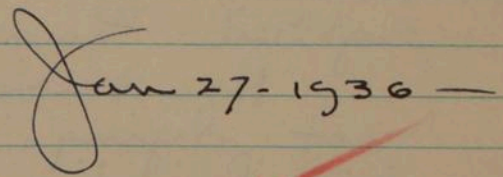 Jan 27-1936 —